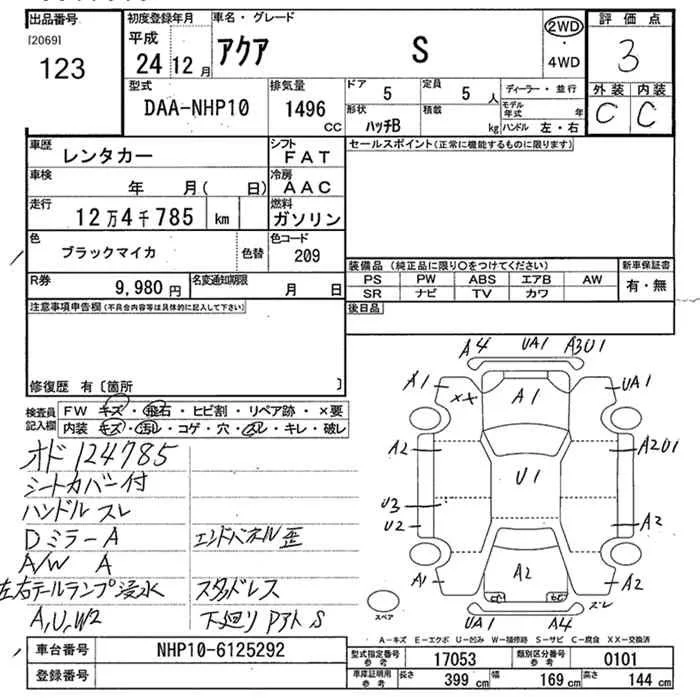 出品番号
[2069]
123
初度登録年月
平成
24 12 月
車名・グレード
アクア S
2WD
・
4WD
評価点
3
外装 内装
C C
型式
DAA-NHP10
排気量
1496
CC
ドア
5
定員
5 人
形状
ハッチB
積載
kg
ディーラー・並行
モデル年式 年
ハンドル 左・右
車歴
レンタカー
シフト
FAT
車検
年 月( 日)
冷房
AAC
走行
12万4千785 km
燃料
ガソリン
色
ブラックマイカ
色替
色コード
209
R券
9,980 円
名変通知期限
月 日
セールスポイント(正常に機能するものに限ります)
装備品(純正品に限り○をつけてください)
PS PW ABS エアB AW
SR ナビ TV カワ
新車保証書
有・無
後日品
注意事項申告欄(不具合内容等は具体的に記入して下さい)
修復歴 有〔箇所 〕
検査員
記入欄
FW キズ・飛石・ヒビ割・リペア跡・×要
内装 キズ・汚れ・コゲ・穴・スレ・キレ・破レ
オド 124785
シートカバー付
ハンドル スレ
Dミラー A
A/W A
左右テールランプ浸水
A,U,W2
エンドパネル歪
スタッドレス
下廻り Pアト S
A4 UA1 A3U1
A1 XX A1 UA1
A2 A2U1
U1
U3
U2 A2
A1 A2 A2
スレ
UA1 A4
スペア
A-キズ E-エクボ U-凹み W-補修跡 S-サビ C-腐食 XX-交換済
車台番号
NHP10-6125292
登録番号
型式指定番号
参考
17053
類別区分番号
参考
0101
車庫証明用
参考
長さ 399 cm 幅 169 cm 高さ 144 cm